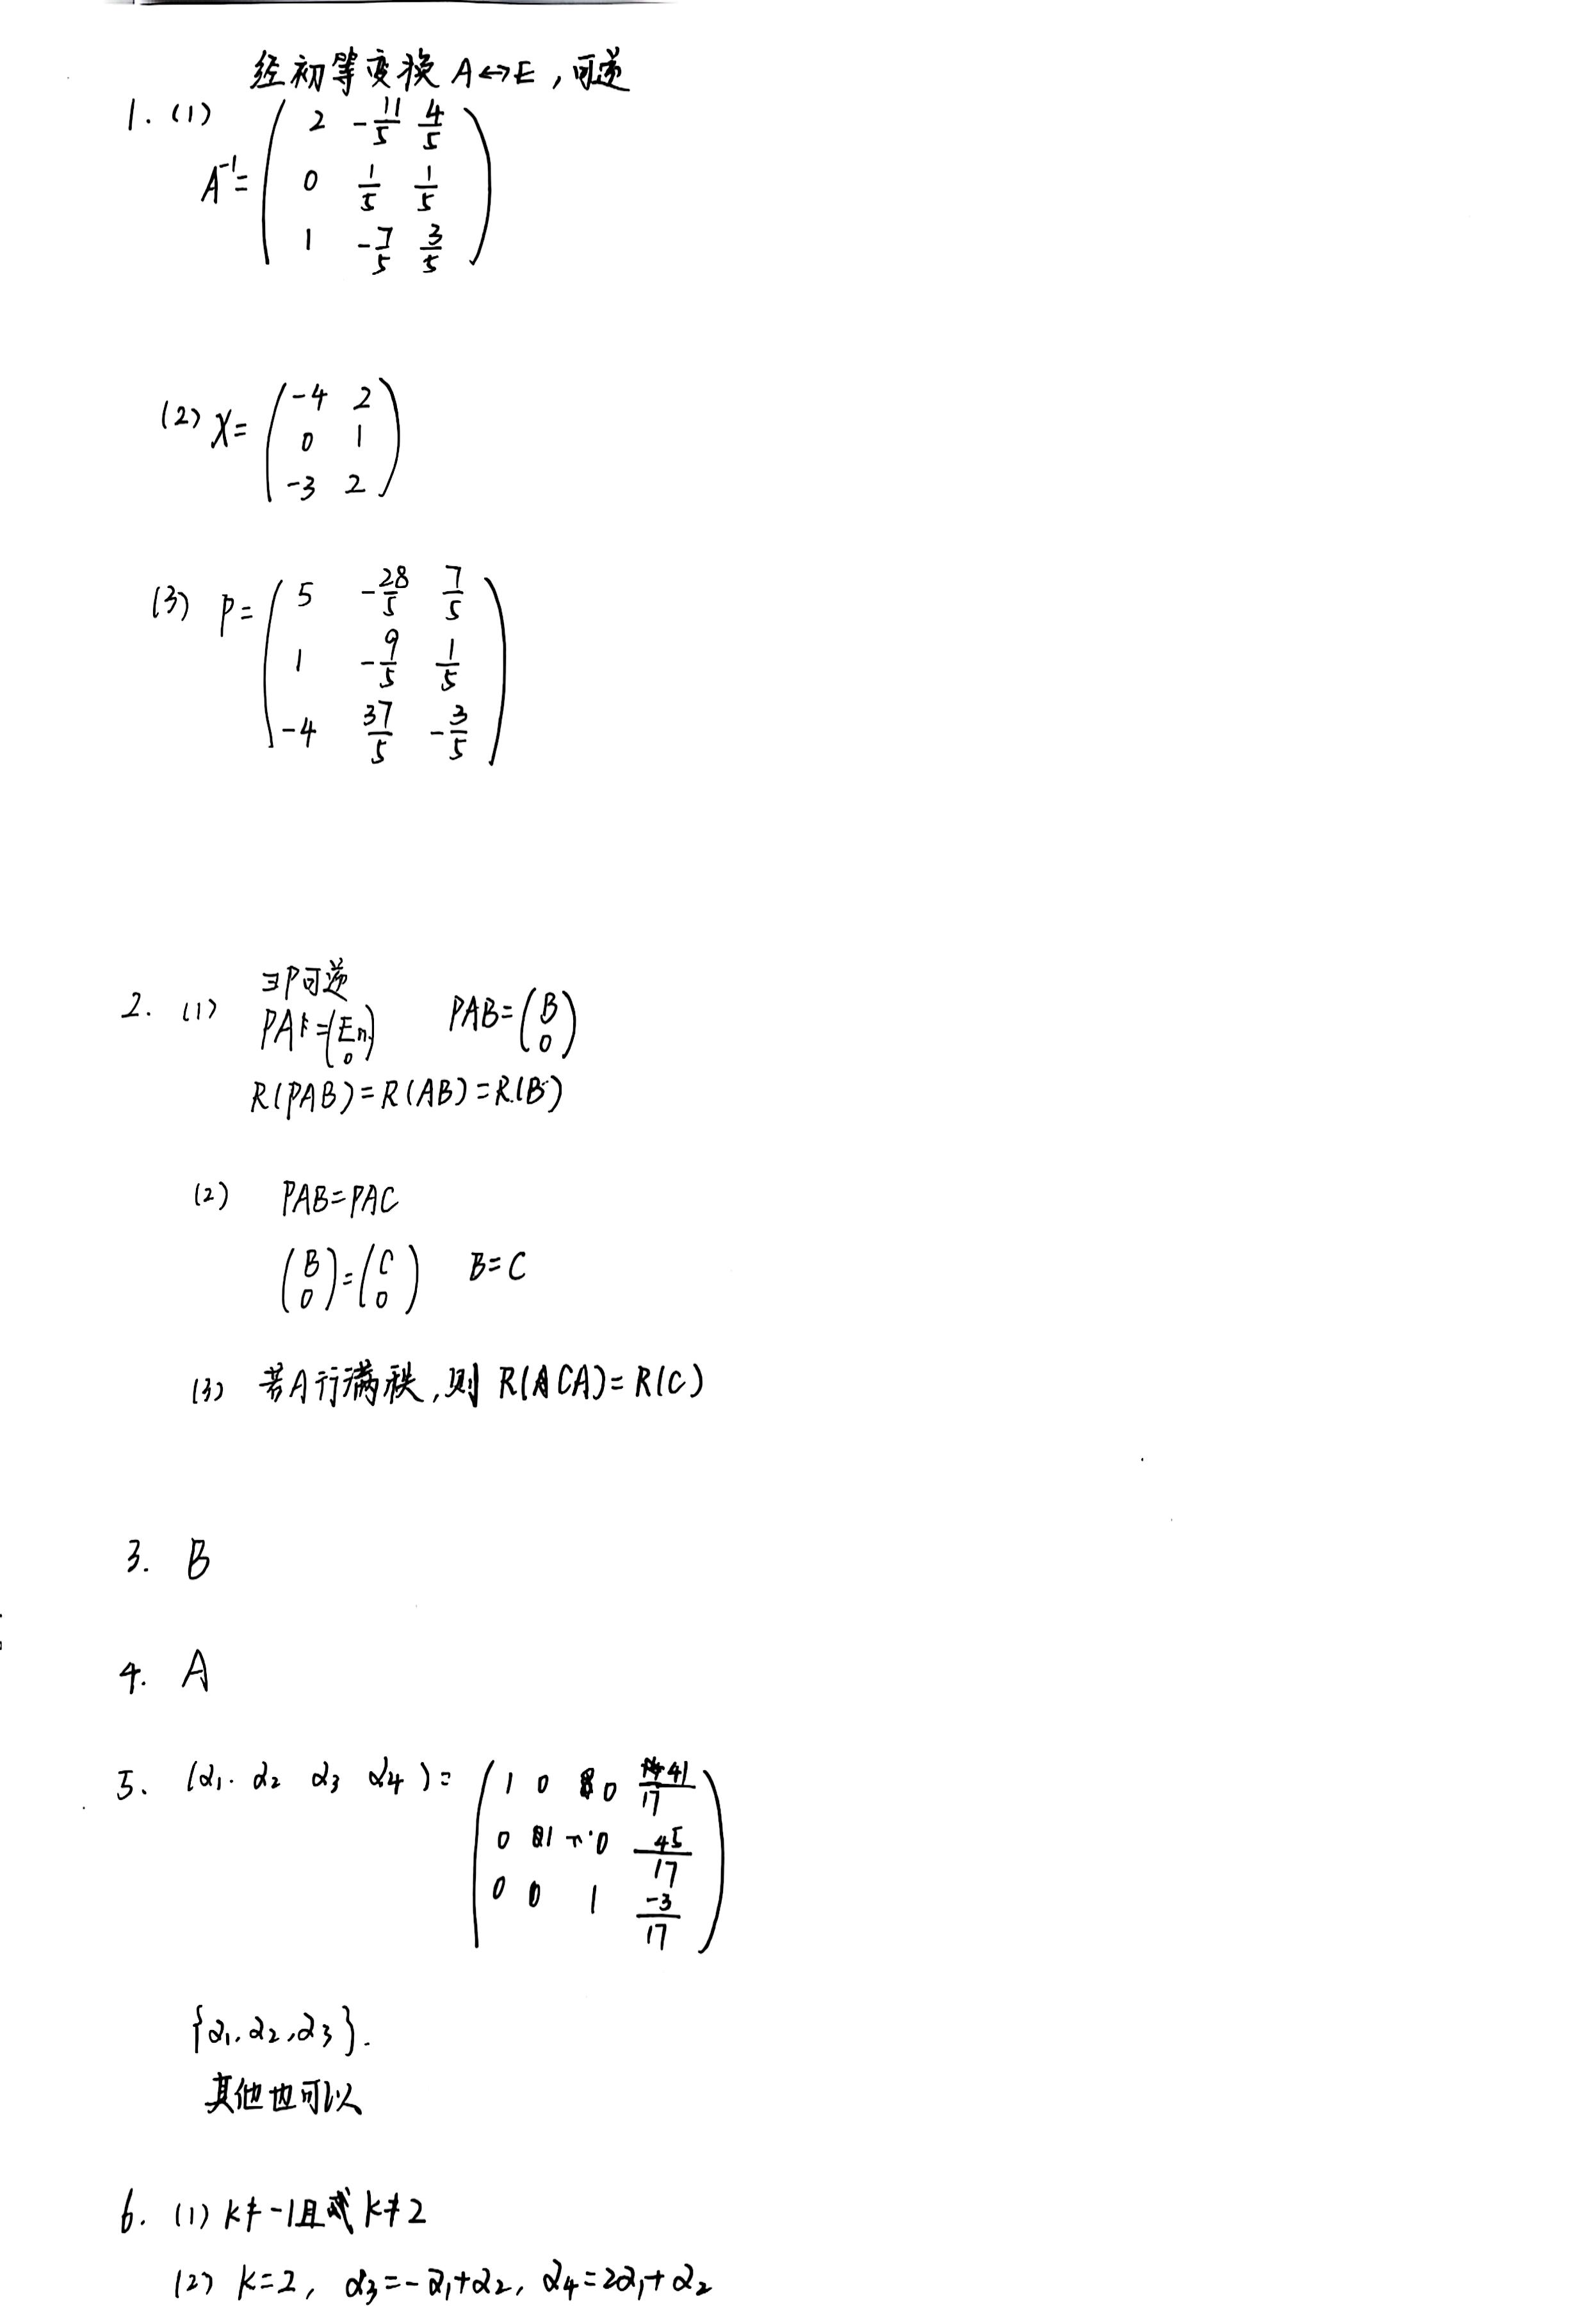 经初等变换 A↔E,可逆
1. (1)
A⁻¹= ( 2 -11/5 4/5
0 1/5 1/5
1 -7/5 3/5 )
(2) X= ( -4 2
0 1
-3 2 )
(3) P= ( 5 -28/5 7/5
1 -9/5 1/5
-4 37/5 -3/5 )
2. (1) ∃P可逆
PA=(En 0) PAB=(B 0)
R(PAB)=R(AB)=R(B)
(2) PAB=PAC
(B 0)=(C 0) B=C
(3) 若A行满秩,则 R(ACA)=R(C)
3. B
4. A
5. (α₁. α₂ α₃ α₄)= ( 1 0 0 41/17
0 1 0 45/17
0 0 1 -3/17 )
{α₁.α₂,α₃}.
其他也可以
6. (1) k≠-1且k≠2
(2) k=2, α₃=-α₁+α₂, α₄=2α₁+α₂